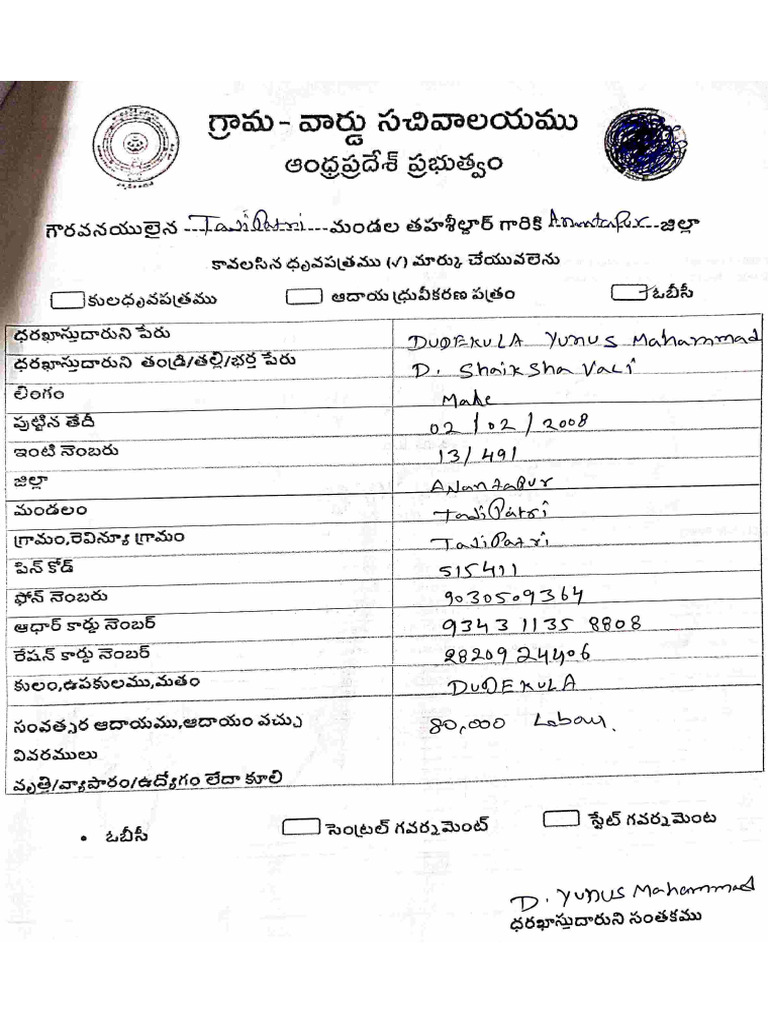 గ్రామ - వార్డు సచివాలయము
ఆంధ్రప్రదేశ్ ప్రభుత్వం
గౌరవనయులైన ---TadiPatri---మండల తహశీల్దార్ గారికి Anantapur---జిల్లా
కావలసిన ధృవపత్రము (√) మార్కు చేయువలెను
కులధృవపత్రము ఆదాయ ధ్రువీకరణ పత్రం ఓబీసీ
ధరఖాస్తుదారుని పేరు DUDEKULA YUNUS Mahammad
ధరఖాస్తుదారుని తండ్రి/తల్లి/భర్త పేరు D. ShaikSha Vali
లింగం Male
పుట్టిన తేదీ 02/02/2008
ఇంటి నెంబరు 13/491
జిల్లా Anantapur
మండలం TadiPatri
గ్రామం,రెవిన్యూ గ్రామం TadiPatri
పిన్ కోడ్ 515411
ఫోన్ నెంబరు 9030509364
ఆధార్ కార్డు నెంబర్ 9343 1135 8808
రేషన్ కార్డు నెంబర్ 2820924406
కులం,ఉపకులము,మతం DUDEKULA
సంవత్సర ఆదాయము,ఆదాయం వచ్చు 80,000 Labour.
వివరములు
వృత్తి/వ్యాపారం/ఉద్యోగం లేదా కూలి
• ఓబీసీ సెంట్రల్ గవర్నమెంట్ స్టేట్ గవర్నమెంట
D. YUNUS Mahammad
ధరఖాస్తుదారుని సంతకము